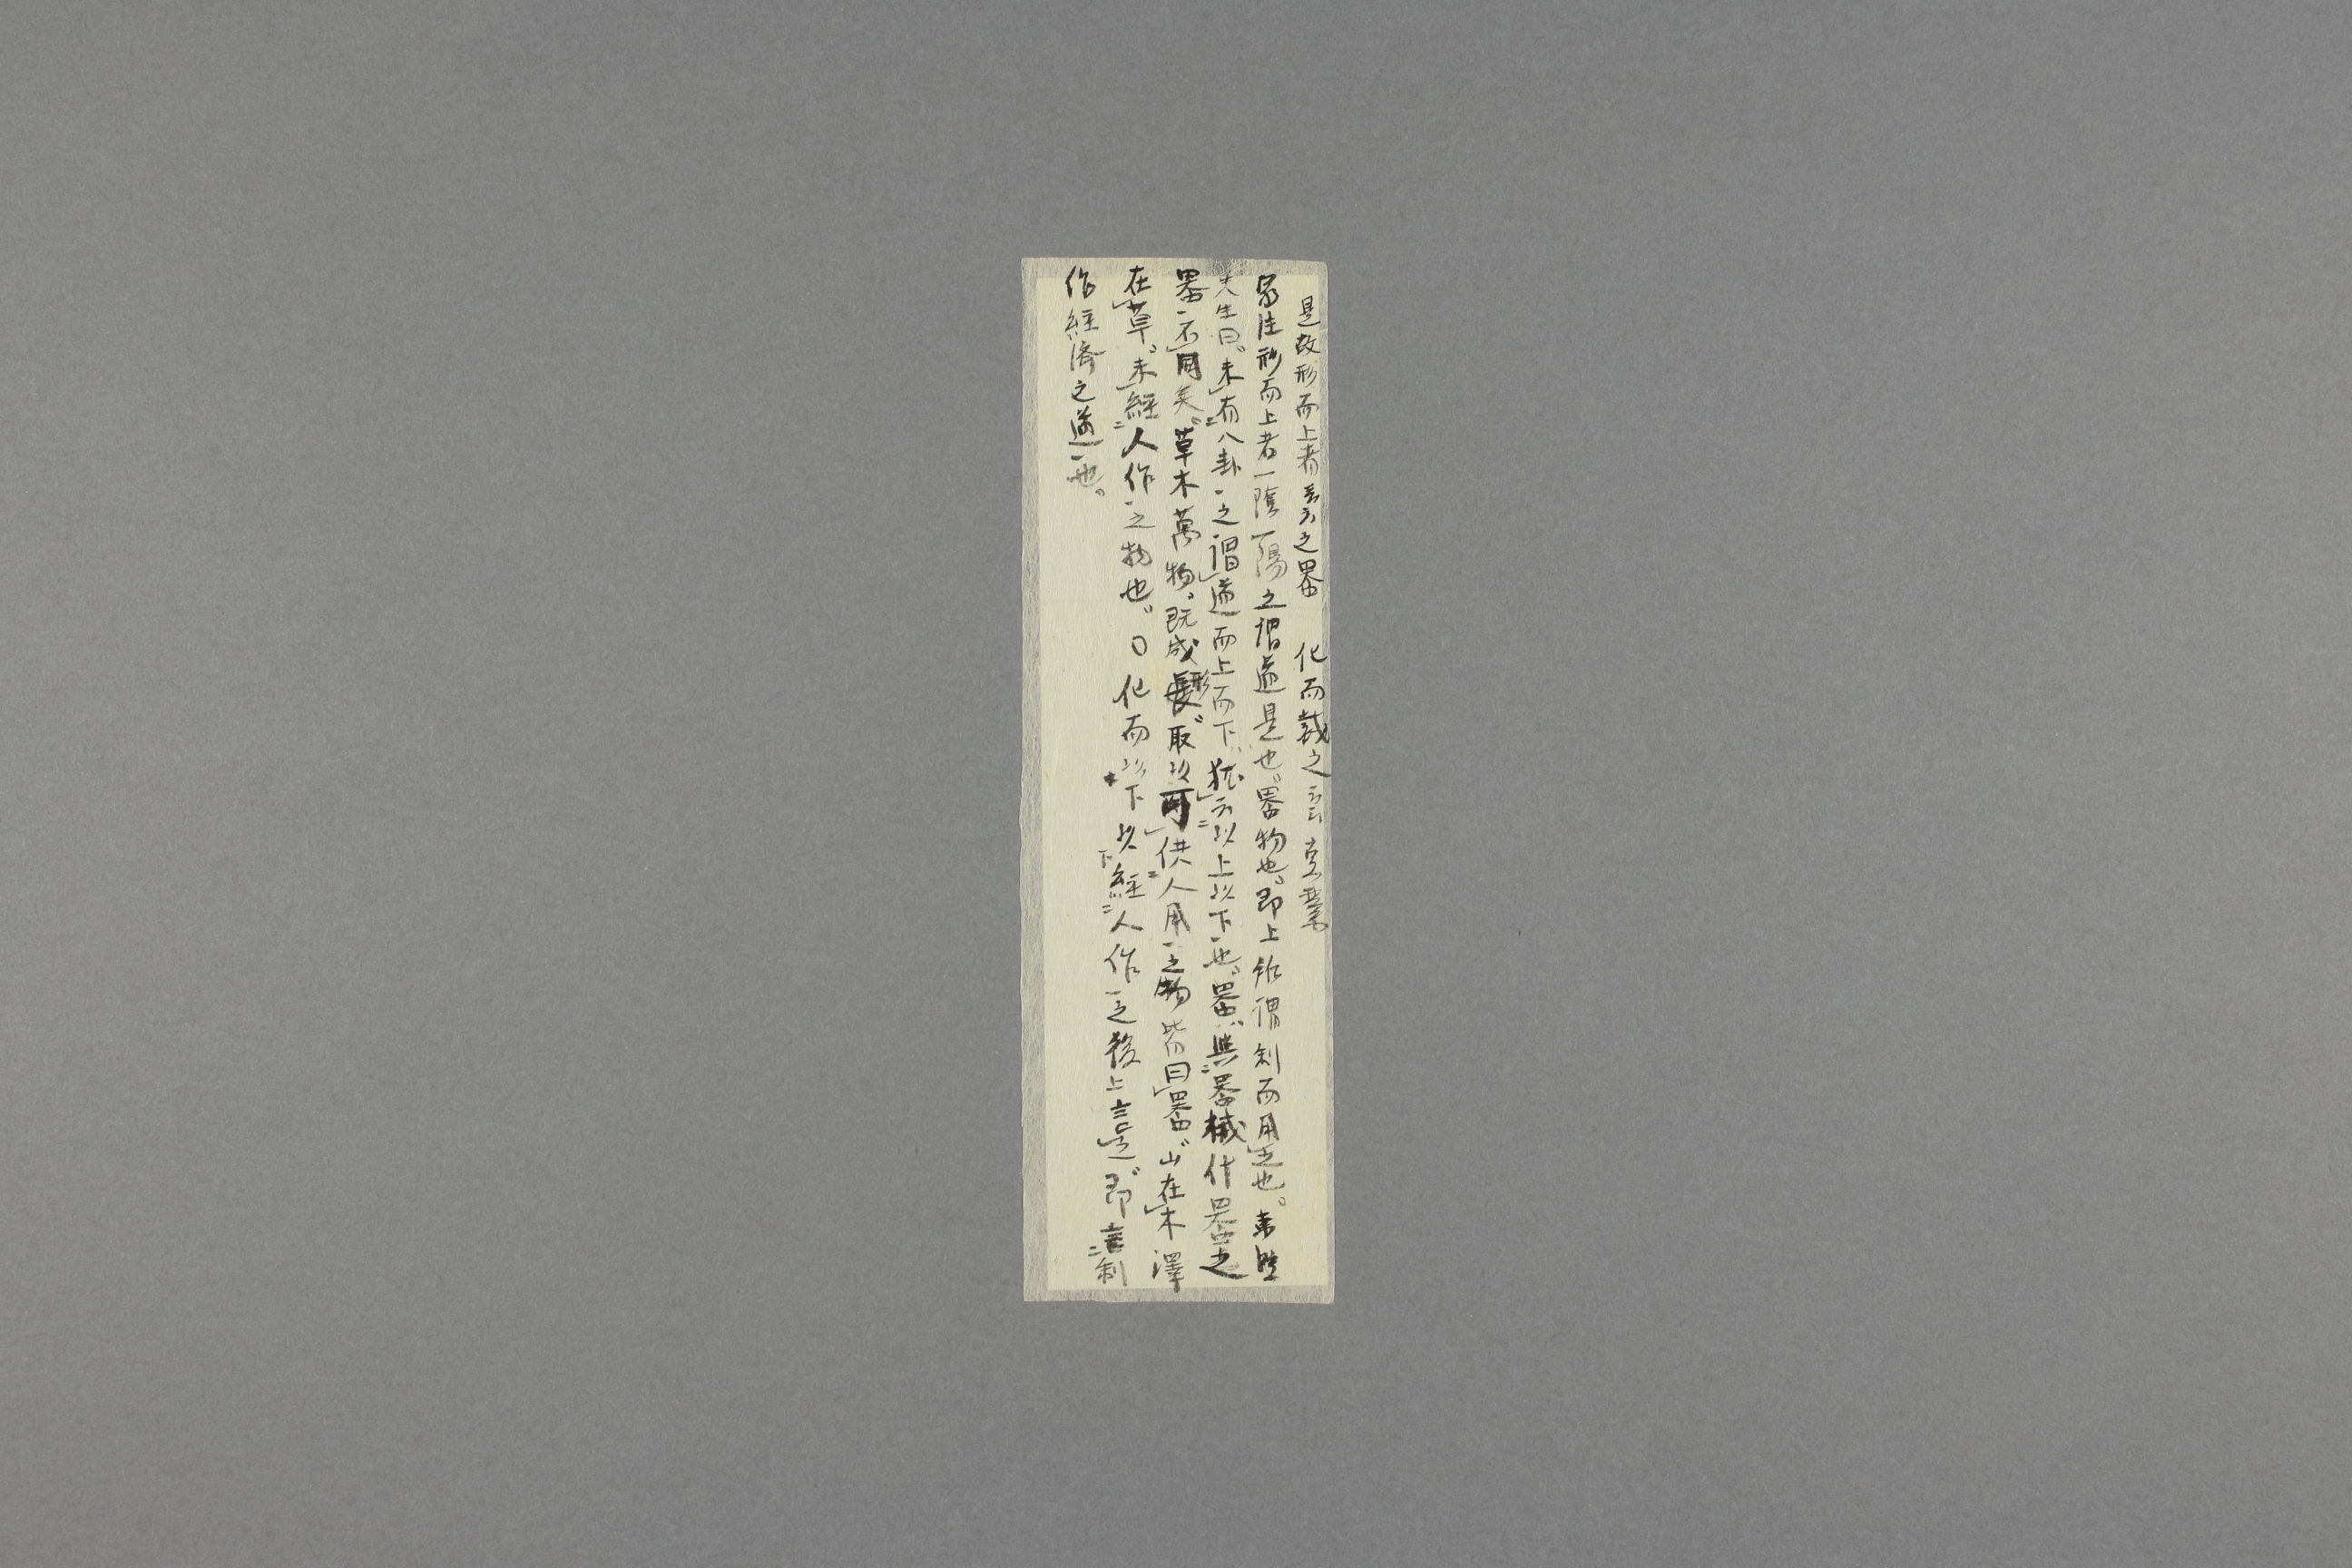 是故形而上者云云之器　化而裁之云云事業
家注形而上者一陰一陽之謂道是也器物也即上所謂制而用之也。東涯
先生曰、未有八卦之謂道而上而下、猶云以上以下也。器與器械什器之
器不同矣。草木萬物、既成形、取以可供人用之物皆曰器、山在木澤
在草、未經人作之物也。〇化而以下以經人作之後上言道、即言制
作經濟之道也。